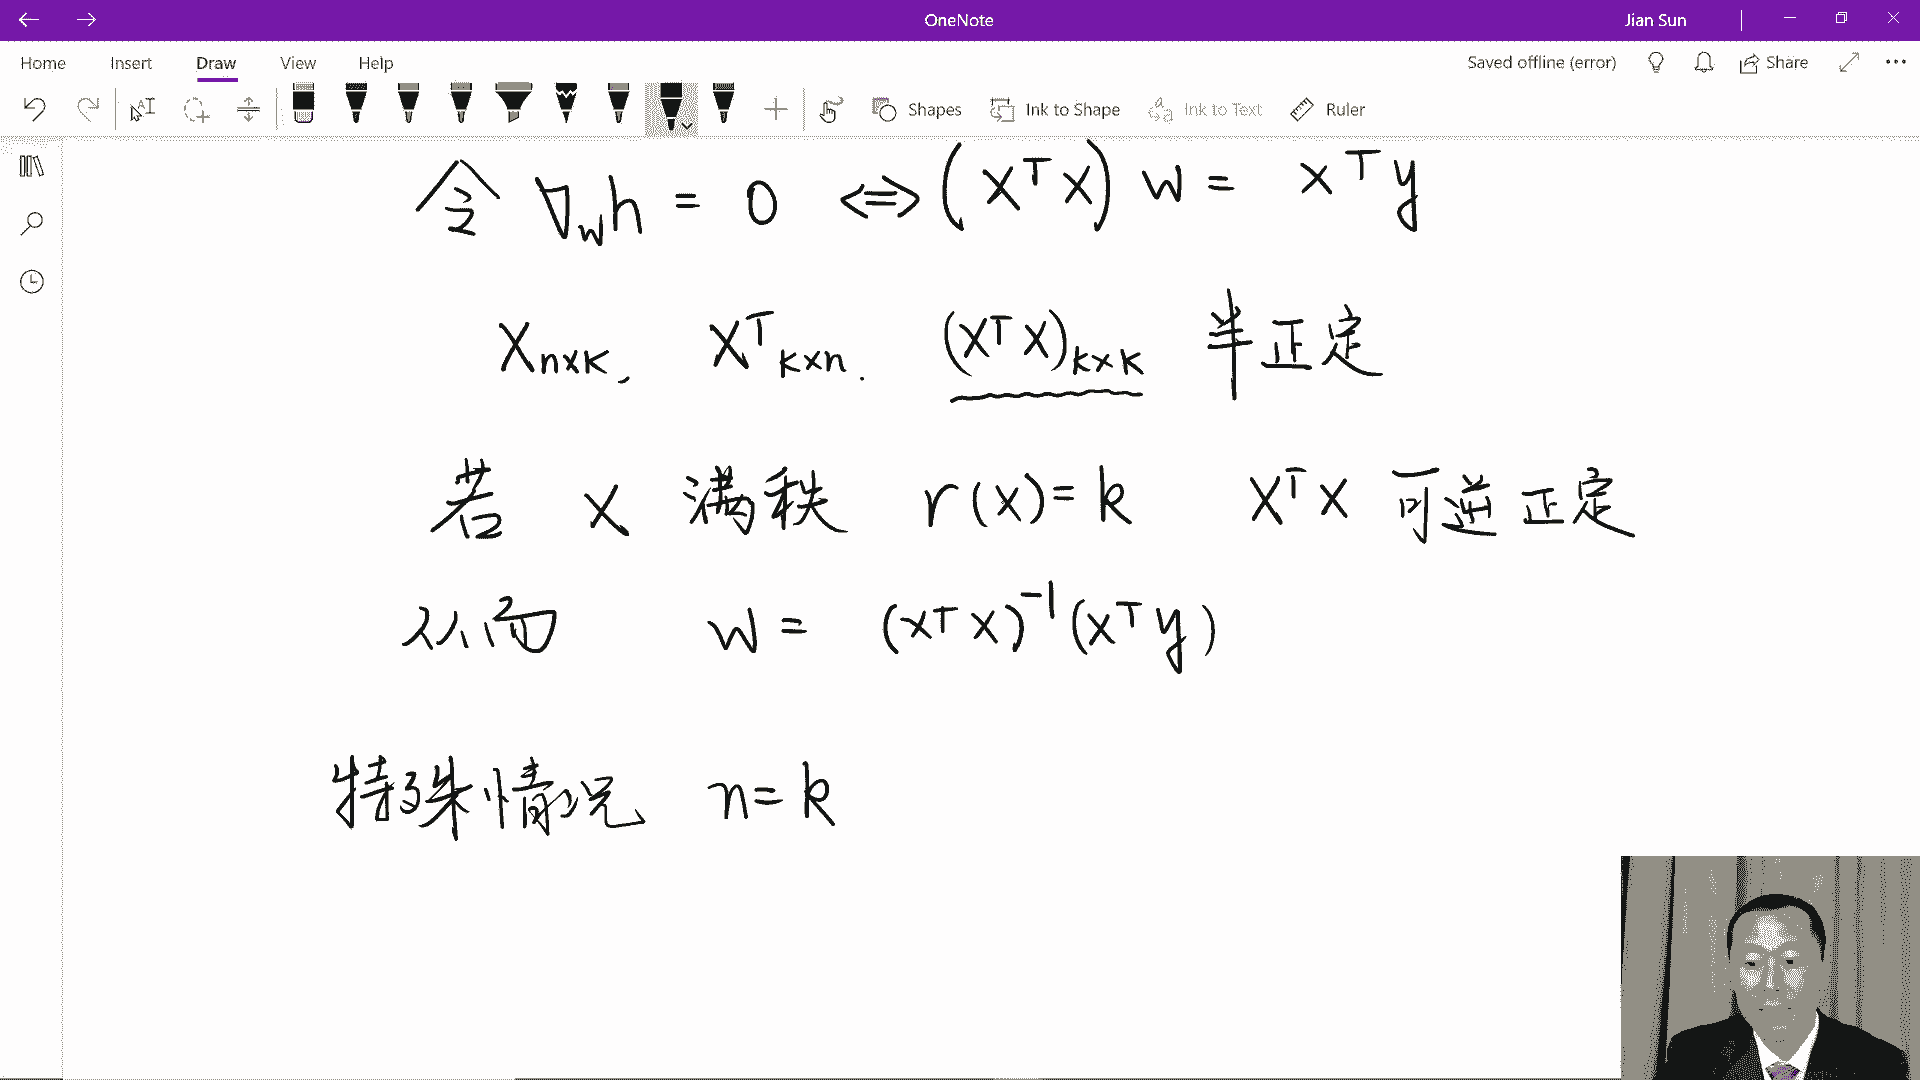 OneNote
Jian Sun
Home Insert Draw View Help
Saved offline (error) Share
Shapes Ink to Shape Ink to Text Ruler
令 ∇_w h = 0 ⟺ (X^T X) w = X^T y
X_{n×k}, X^T_{k×n}. (X^T X)_{k×k} 半正定
若 X 满秩 r(X)=k X^T X 可逆 正定
从而 w = (X^T X)^{-1} (X^T y)
特殊情况 n=k